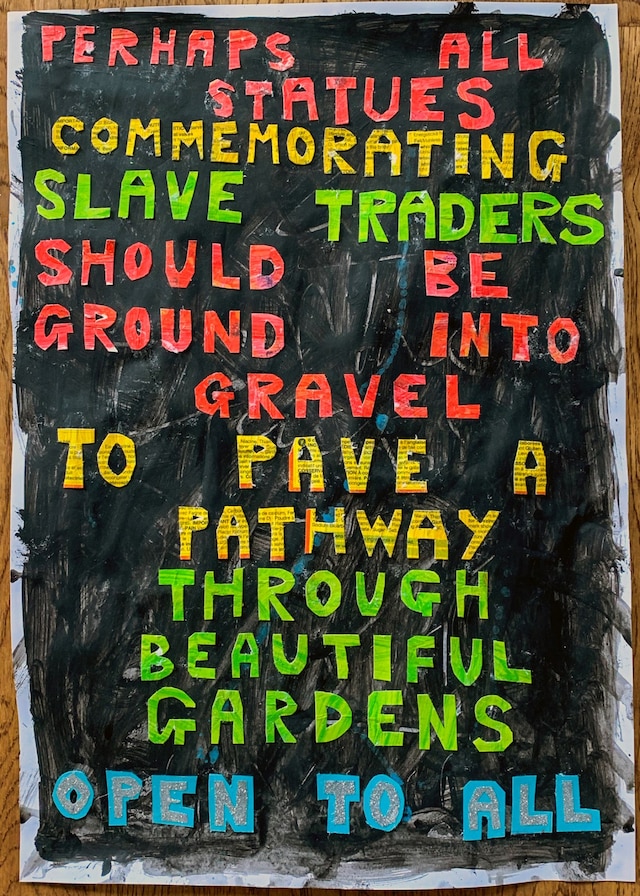 PERHAPS ALL
STATUES
COMMEMORATING
SLAVE TRADERS
SHOULD BE
GROUND INTO
GRAVEL
TO PAVE A
PATHWAY
THROUGH
BEAUTIFUL
GARDENS
OPEN TO ALL